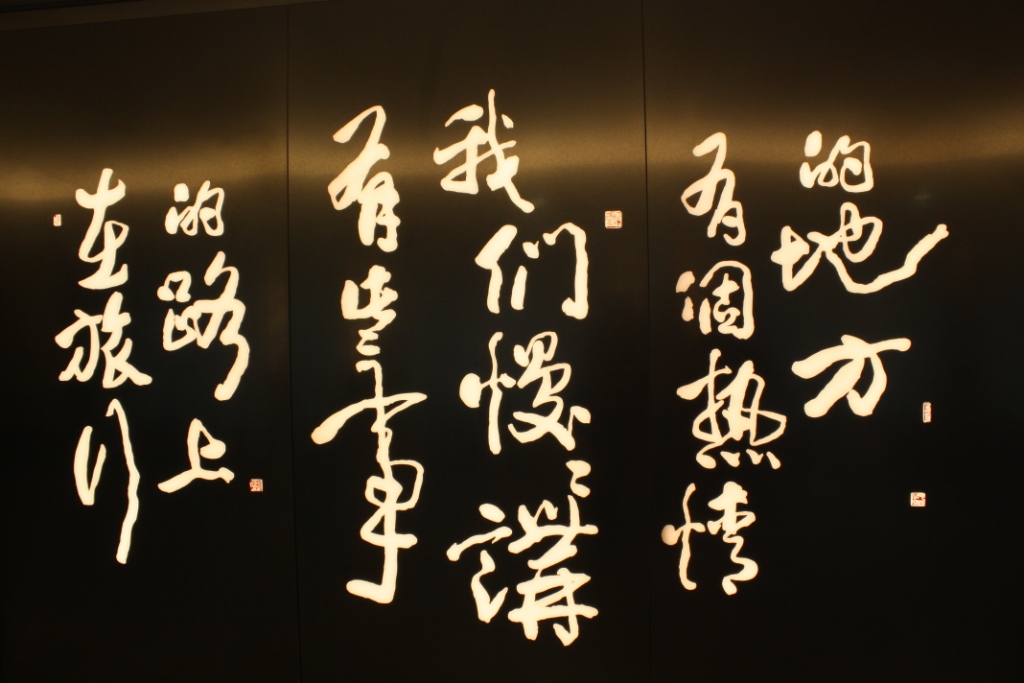 在旅行
的路上
有些事
我們慢慢講
有個熱情
的地方